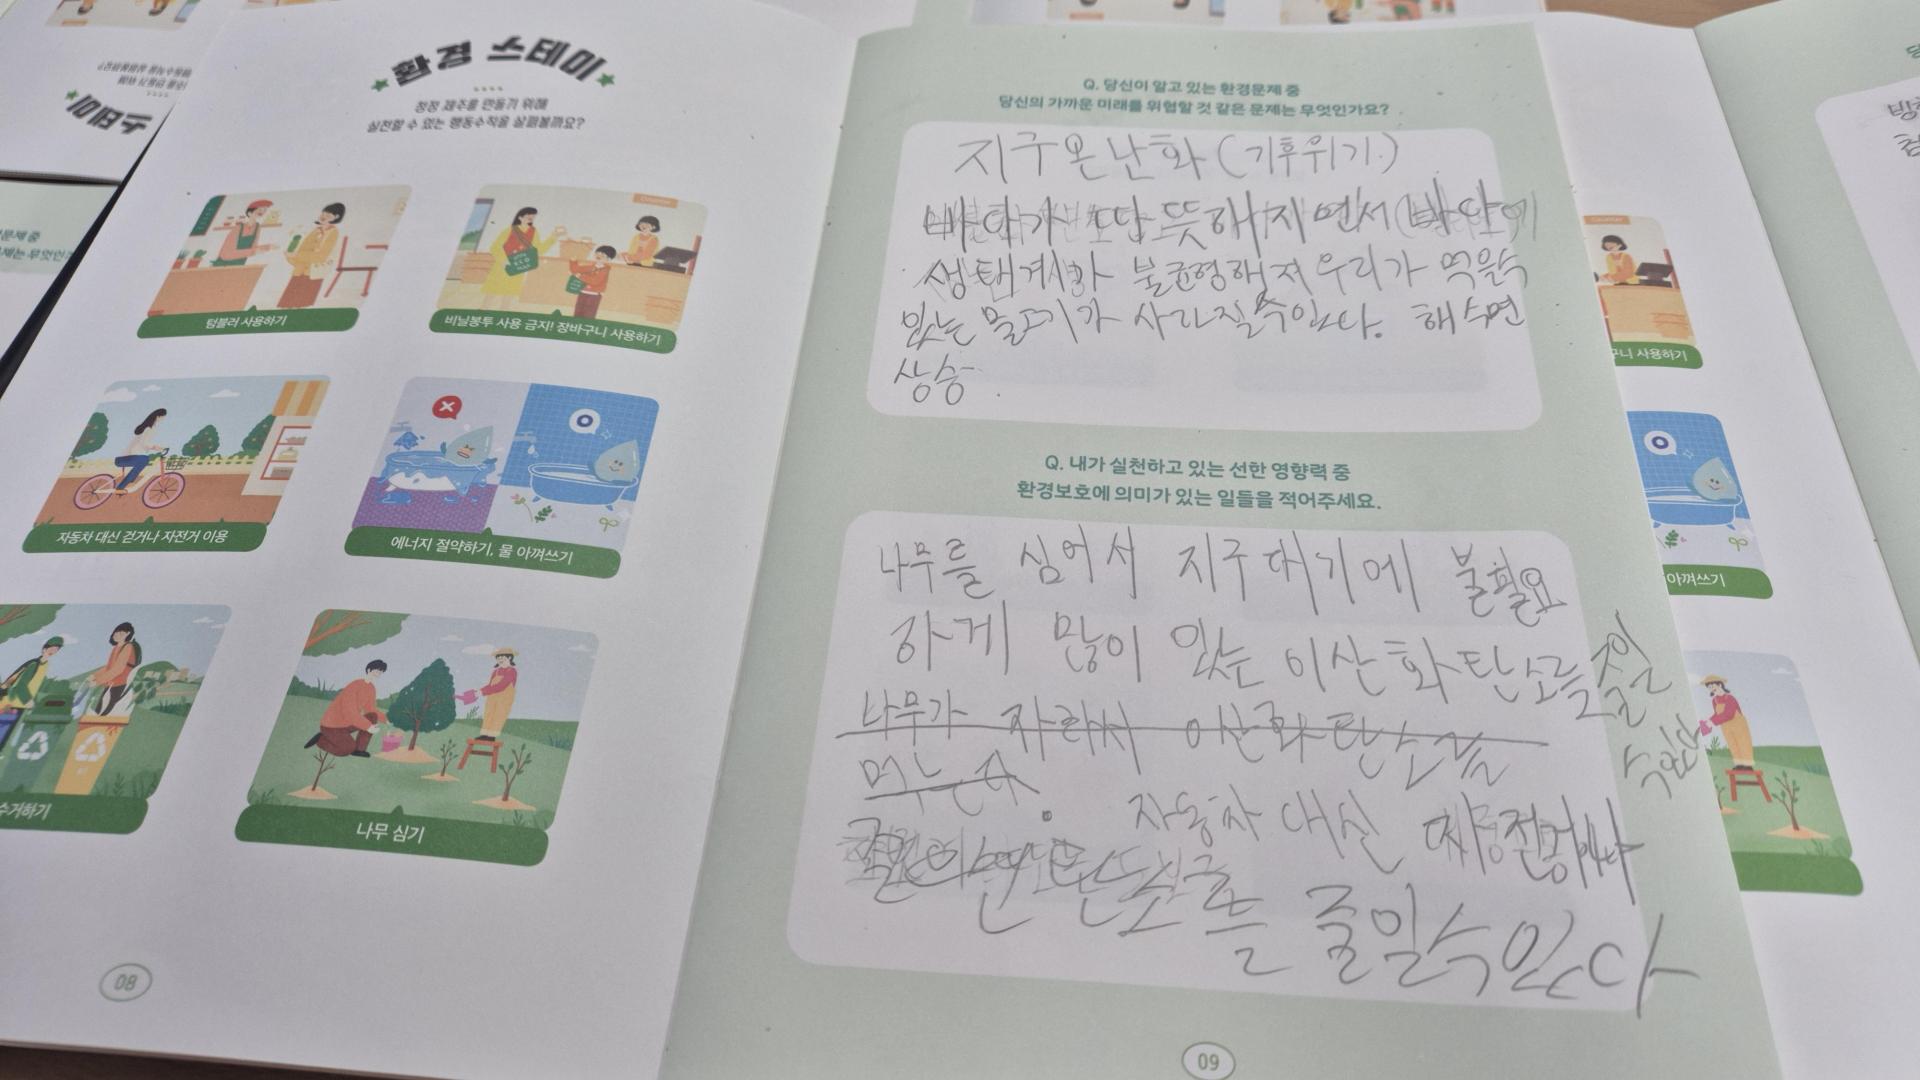 환경 스테이
청정 제주를 만들기 위해
실천할 수 있는 행동수칙을 살펴볼까요?
텀블러 사용하기
비닐봉투 사용 금지! 장바구니 사용하기
자동차 대신 걷거나 자전거 이용
에너지 절약하기, 물 아껴쓰기
수거하기
나무 심기
08
Q. 당신이 알고 있는 환경문제 중
당신의 가까운 미래를 위협할 것 같은 문제는 무엇인가요?
지구온난화(기후위기)
바다가 따뜻해지면서 바다에
생태계가 불균형해져 우리가 먹을수
있는 물고기가 사라질수있다. 해수면
상승.
Q. 내가 실천하고 있는 선한 영향력 중
환경보호에 의미가 있는 일들을 적어주세요.
나무를 심어서 지구대기에 불필요
하게 많이 있는 이산화탄소를 줄일
수있다.
나무가 자라서 이산화탄소를
먹는다.
자동차 대신
탄소를 줄일수있다
09
문제 중
제는 무엇인가
스테이
구니 사용하기
아껴쓰기